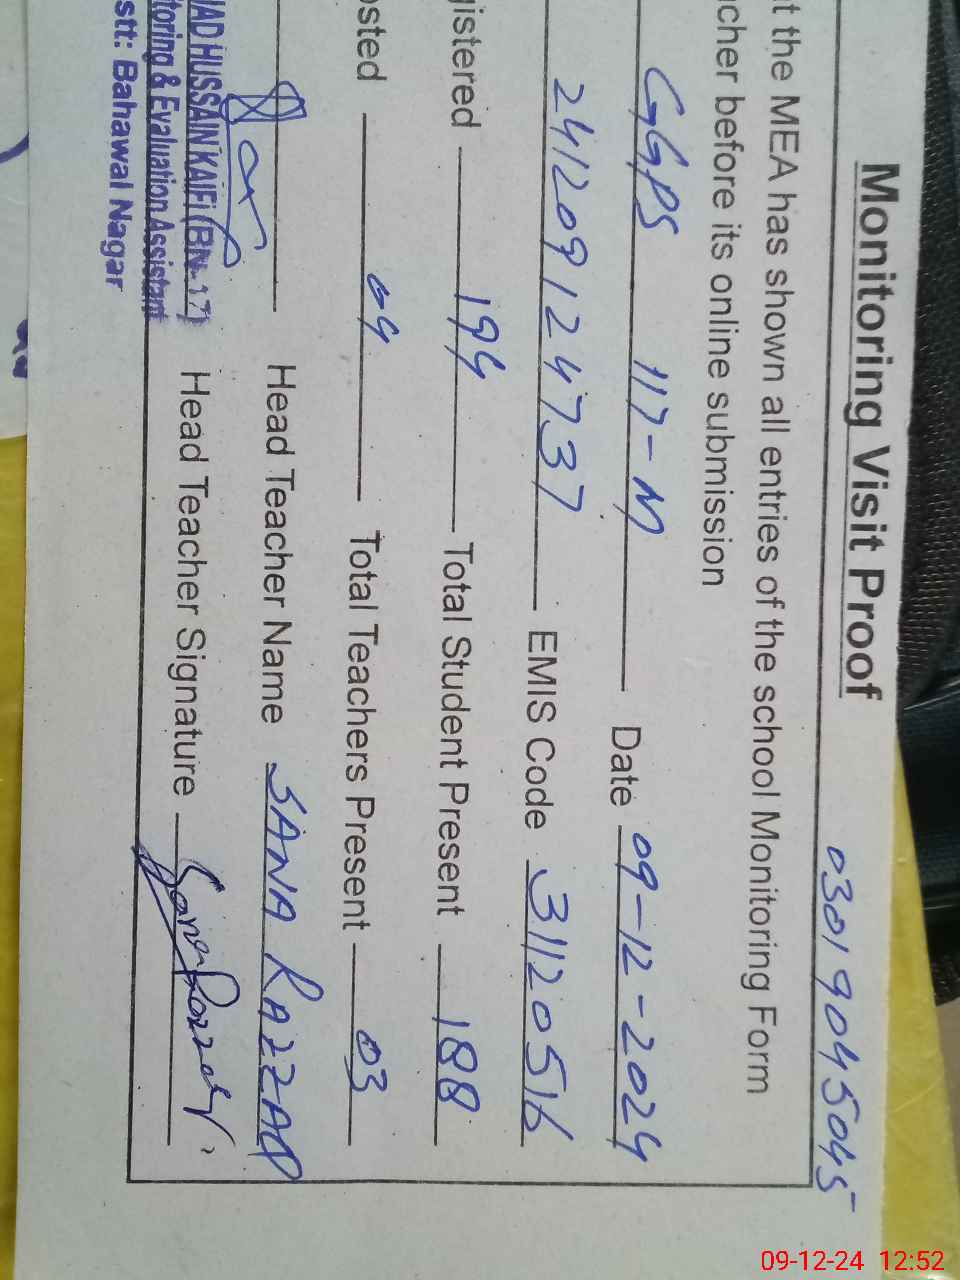 Monitoring Visit Proof 03019045045
t the MEA has shown all entries of the school Monitoring Form
cher before its online submission
GGPS 117-M Date 09-12-2024
24120912 4737 EMIS Code 31120516
gistered 194 Total Student Present 188
osted 04 Total Teachers Present 03
Head Teacher Name SANA RAZZAQ
Head Teacher Signature Sana Razzaq
AD HUSSAIN KAIFI (BN-17)
toring & Evaluation Assistant
stt: Bahawal Nagar
09-12-24 12:52